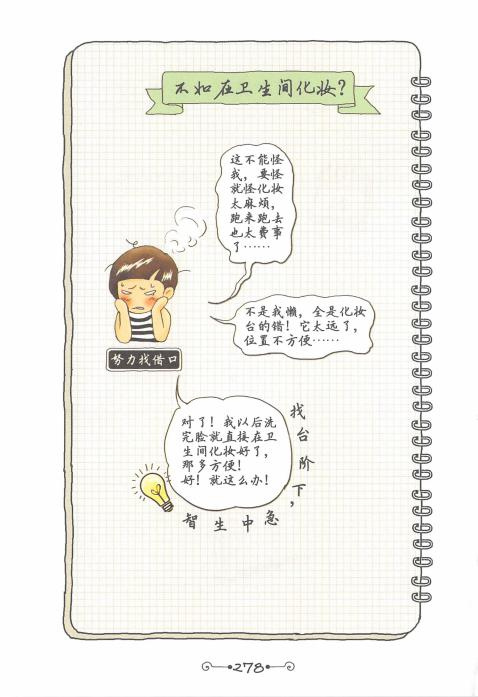 不如在卫生间化妆?
这不能怪
我,要怪
就怪化妆
太麻烦,
跑来跑去
也太费事
了……
不是我懒,全是化妆
台的错!它太远了,
位置不方便……
努力找借口
对了!我以后洗
完脸就直接在卫
生间化妆好了,
那多方便!
好!就这么办!
找台阶下,
急中生智
278